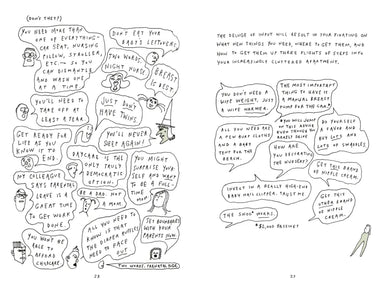 (DON'T THEY?)
YOU NEED MORE THAN
ONE OF EVERYTHING–
CAR SEAT, NURSING
PILLOW, STROLLER,
ETC.– SO YOU
CAN DISMANTLE
AND WASH ONE
AT A TIME
DON'T EAT YOUR
BABY'S LEFTOVERS
TWO WORDS:
NIGHT NURSE
BREAST
IS BEST
YOU'LL NEED TO
TAKE OFF AT
LEAST A YEAR.
JUST DON'T
HAVE TWINS
GET READY FOR
LIFE AS YOU
KNOW IT TO
END
YOU'LL NEVER
SLEEP AGAIN!
DAYCARE IS THE
ONLY TRULY
DEMOCRATIC
OPTION.
YOU MIGHT
SURPRISE YOUR-
SELF AND WANT
TO BE A FULL-
TIME MOM
MY COLLEAGUE
SAYS PARENTAL
LEAVE IS A
GREAT TIME
TO GET WORK
DONE.
BE A DAD, NOT
A MOM
ALL YOU NEED TO
KNOW IS THAT
THE DIAPER RUFFLES
NEED TO
FACE OUT
SET BOUNDARIES
WITH YOUR
PARENTS NOW.
YOU WON'T BE
ABLE TO
AFFORD
CHILDCARE
TWO WORDS, PARENTAL SIDE
THE DELUGE OF INPUT WILL RESULT IN YOUR FIXATING ON
WHAT NEW THINGS YOU NEED, WHERE TO GET THEM, AND
HOW TO GET THEM UP THREE FLIGHTS OF STAIRS INTO
YOUR INCREASINGLY CLUTTERED APARTMENT.
YOU DON'T NEED A
WIPE WARMER, JUST
A WIPE WARMER.
THE MOST IMPORTANT
THING TO HAVE IS
A MANUAL BREAST
PUMP FOR THE CAR
ALL YOU NEED ARE
A FEW BURP CLOTHS
AND A BABY
TUB FOR THE
BENCH.
HOW ARE
YOU DECORATING
THE NURSERY?
DO YOURSELF
A FAVOR AND
BUY LOTS AND
LOTS OF SWADDLES
GET THIS BRAND
OF NIPPLE CREAM.
INVEST IN A REALLY HIGH-END
BABY NAIL CLIPPER, TRUST ME
GET THIS
OTHER BRAND
OF NIPPLE
CREAM.
THE SNOO* WORKS.
*$1,000 BASSINET